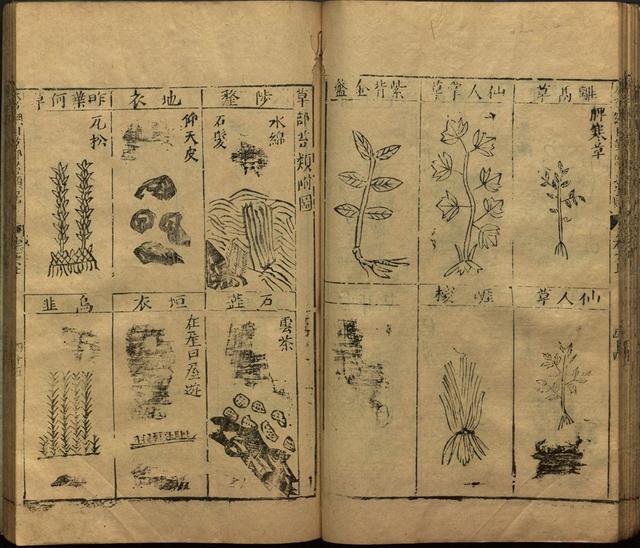 離鬲草
脾寒草
仙人掌草
紫背金盤
仙人草
草部苔類
陟釐
水綿
石髮
地衣
仰天皮
昨葉何草
瓦松
石蕊
雲茶
垣衣
在屋曰屋遊
烏韭